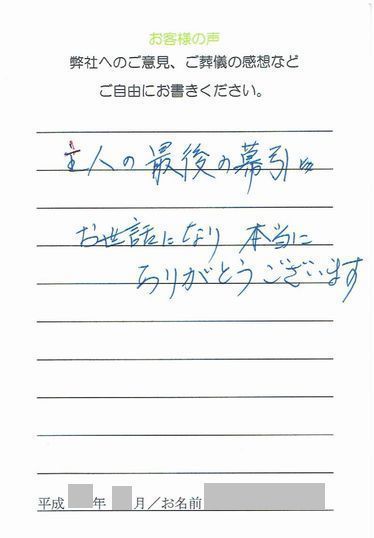 お客様の声
弊社へのご意見、ご葬儀の感想など
ご自由にお書きください。
主人の最後の幕引に
お世話になり 本当に
ありがとうございます
平成 年 月／お名前